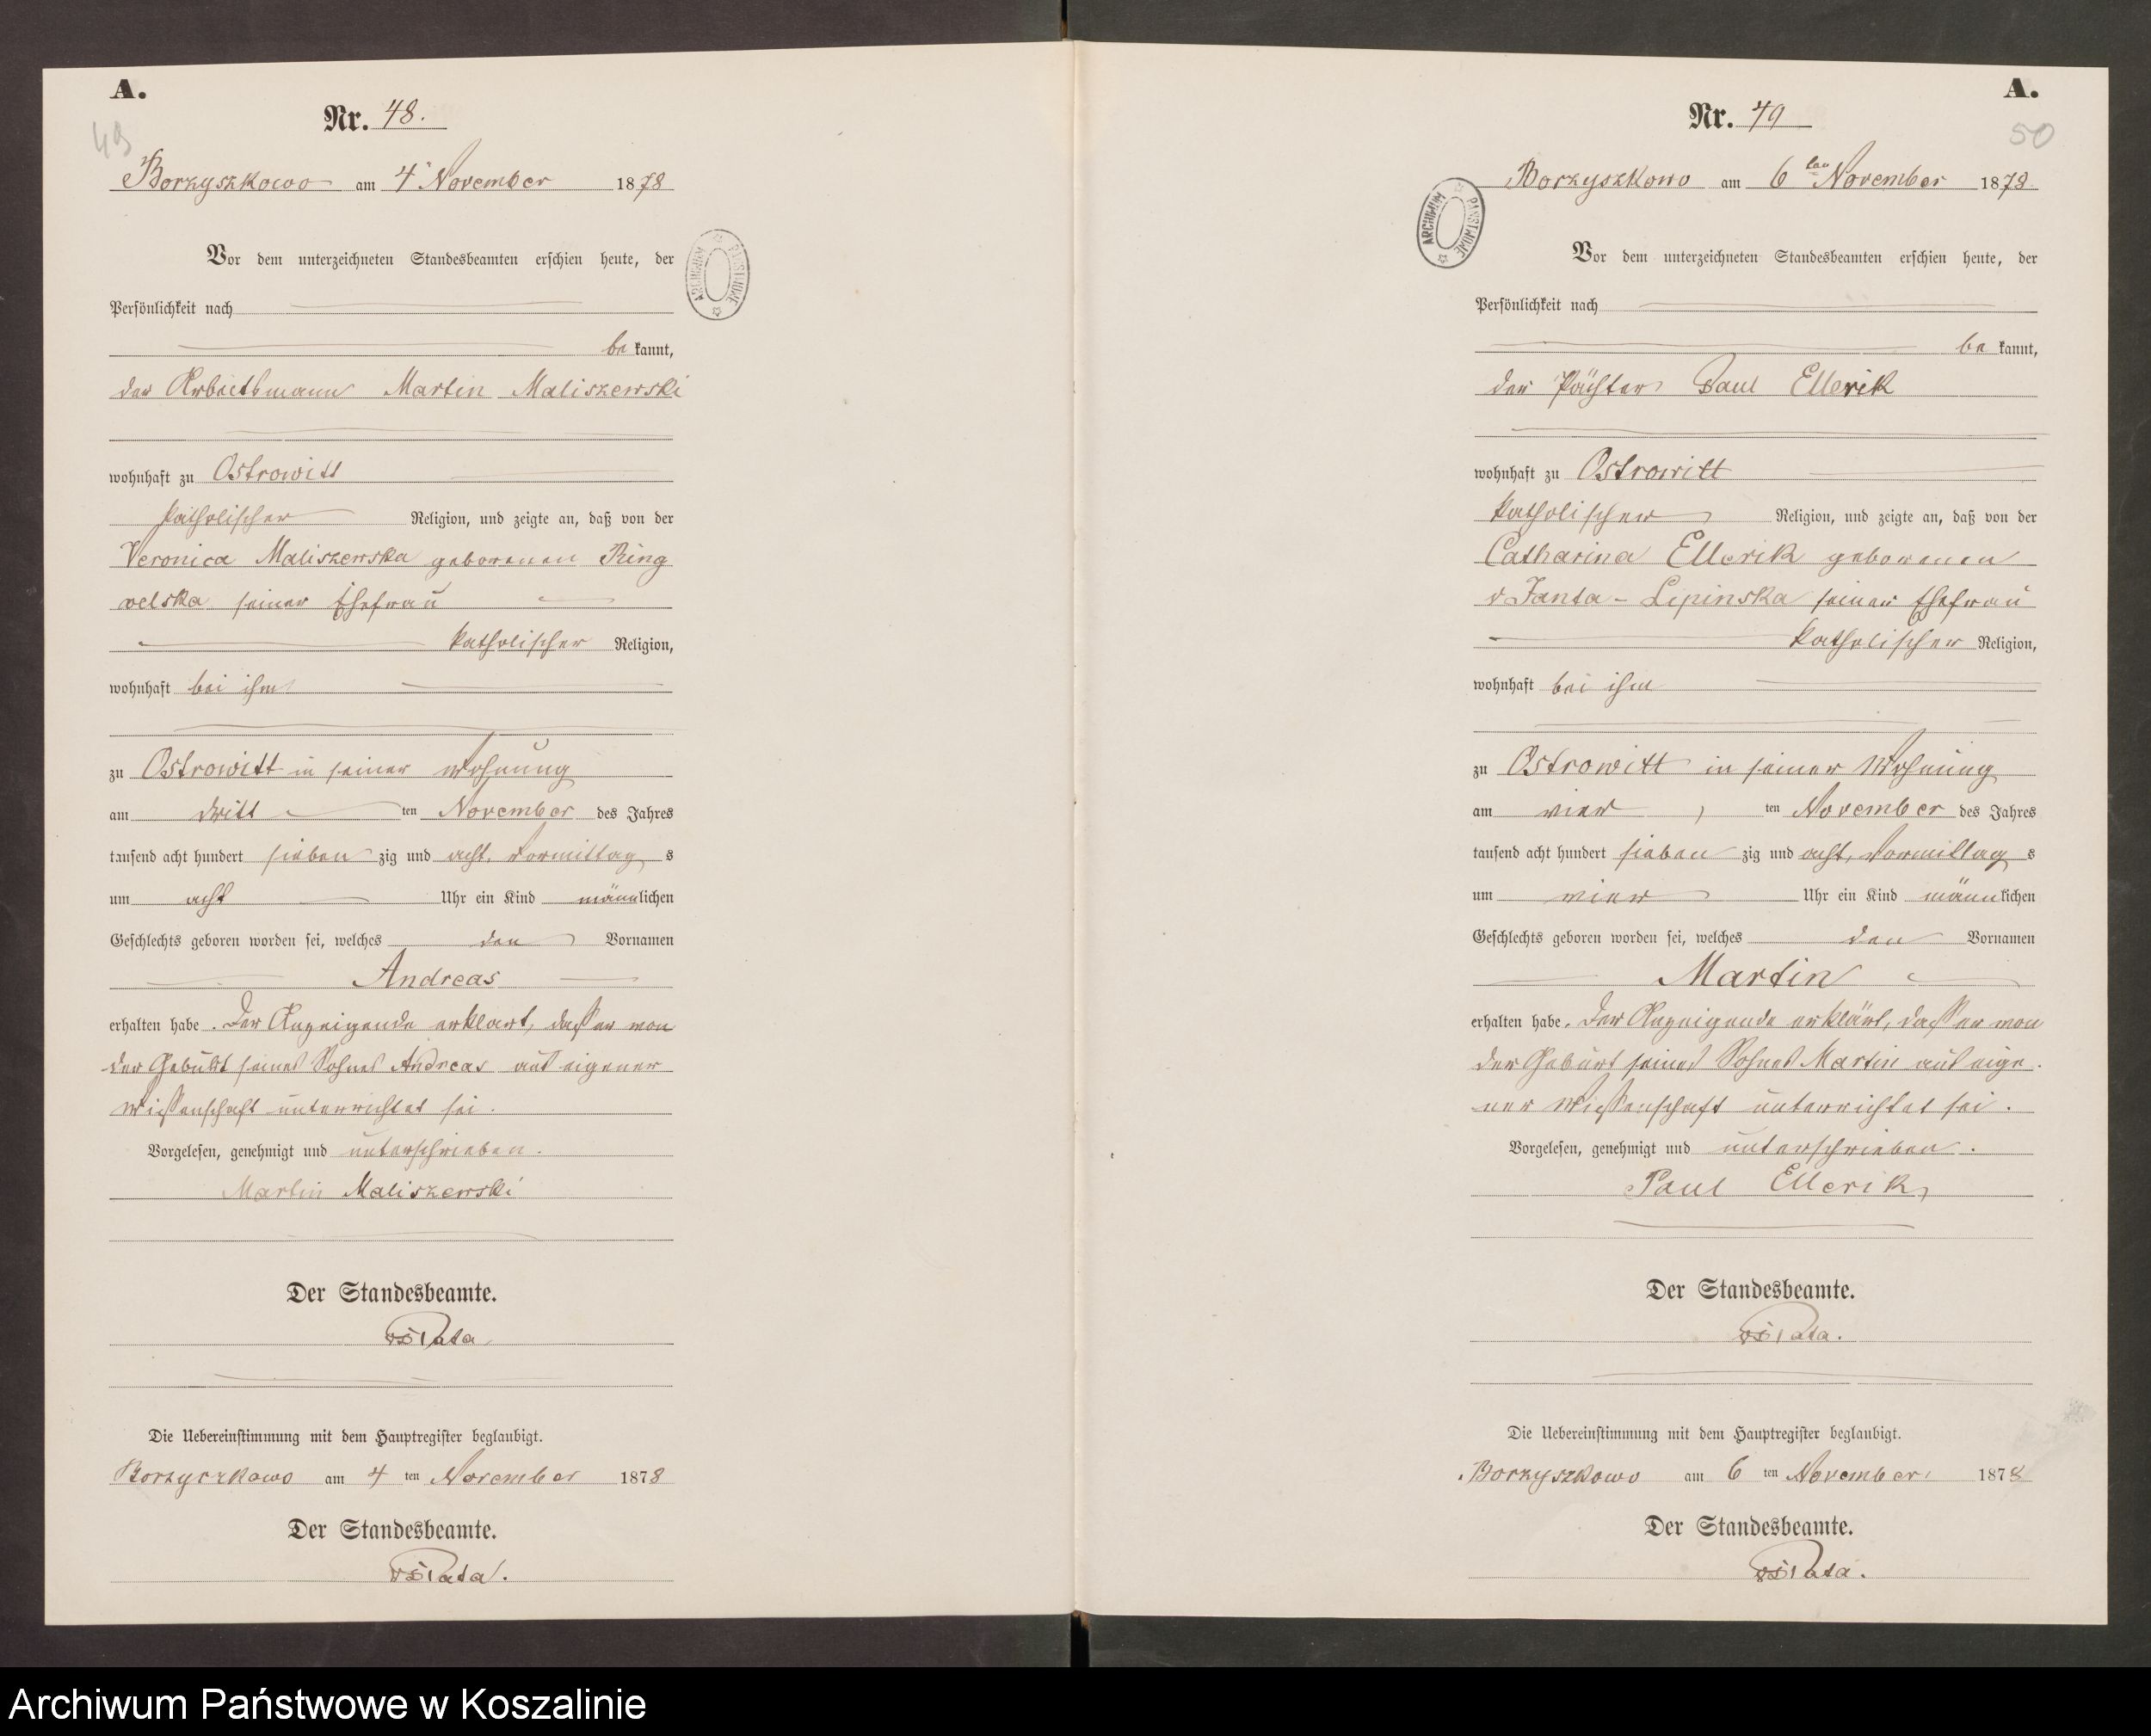 A.
Nr. 48.
49
Borzyszkowo am 4 November 1878
Vor dem unterzeichneten Standesbeamten erschien heute, der
Persönlichkeit nach
be kannt,
der Arbeitsmann Martin Maliszewski
wohnhaft zu Ostrowitt
katholischer Religion, und zeigte an, daß von der
Veronica Maliszewska geborenen Ring
velska seiner Ehefrau
katholischer Religion,
wohnhaft bei ihm
zu Ostrowitt in seiner Wohnung
am dritt ten November des Jahres
tausend acht hundert sieben zig und acht, Vormittag s
um acht Uhr ein Kind männlichen
Geschlechts geboren worden sei, welches den Vornamen
Andreas
erhalten habe. Der Anzeigende erklärt, dass er von
der Geburt seines Sohnes Andreas aus eigener
Wissenschaft unterrichtet sei.
Vorgelesen, genehmigt und unterschrieben.
Martin Maliszewski
Der Standesbeamte.
Die Uebereinstimmung mit dem Hauptregister beglaubigt.
Borzyszkowo am 4 ten November 1878
Der Standesbeamte.
ARCHIWUM PAŃSTWOWE
A.
Nr. 49
50
Borzyszkowo am 6 ten November 1878
Vor dem unterzeichneten Standesbeamten erschien heute, der
Persönlichkeit nach
be kannt,
der Pächter Paul Ellerik
wohnhaft zu Ostrowitt
katholischer Religion, und zeigte an, daß von der
Catharina Ellerik geborenen
v Janta-Lipinska seiner Ehefrau
katholischer Religion,
wohnhaft bei ihm
zu Ostrowitt in seiner Wohnung
am vier ten November des Jahres
tausend acht hundert sieben zig und acht, Vormittag s
um vier Uhr ein Kind männlichen
Geschlechts geboren worden sei, welches den Vornamen
Martin
erhalten habe. Der Anzeigende erklärt, dass er von
der Geburt seines Sohnes Martin aus eige
ner Wissenschaft unterrichtet sei.
Vorgelesen, genehmigt und unterschrieben.
Paul Ellerik
Der Standesbeamte.
Die Uebereinstimmung mit dem Hauptregister beglaubigt.
Borzyszkowo am 6 ten November 1878
Der Standesbeamte.
ARCHIWUM PAŃSTWOWE
Archiwum Państwowe w Koszalinie